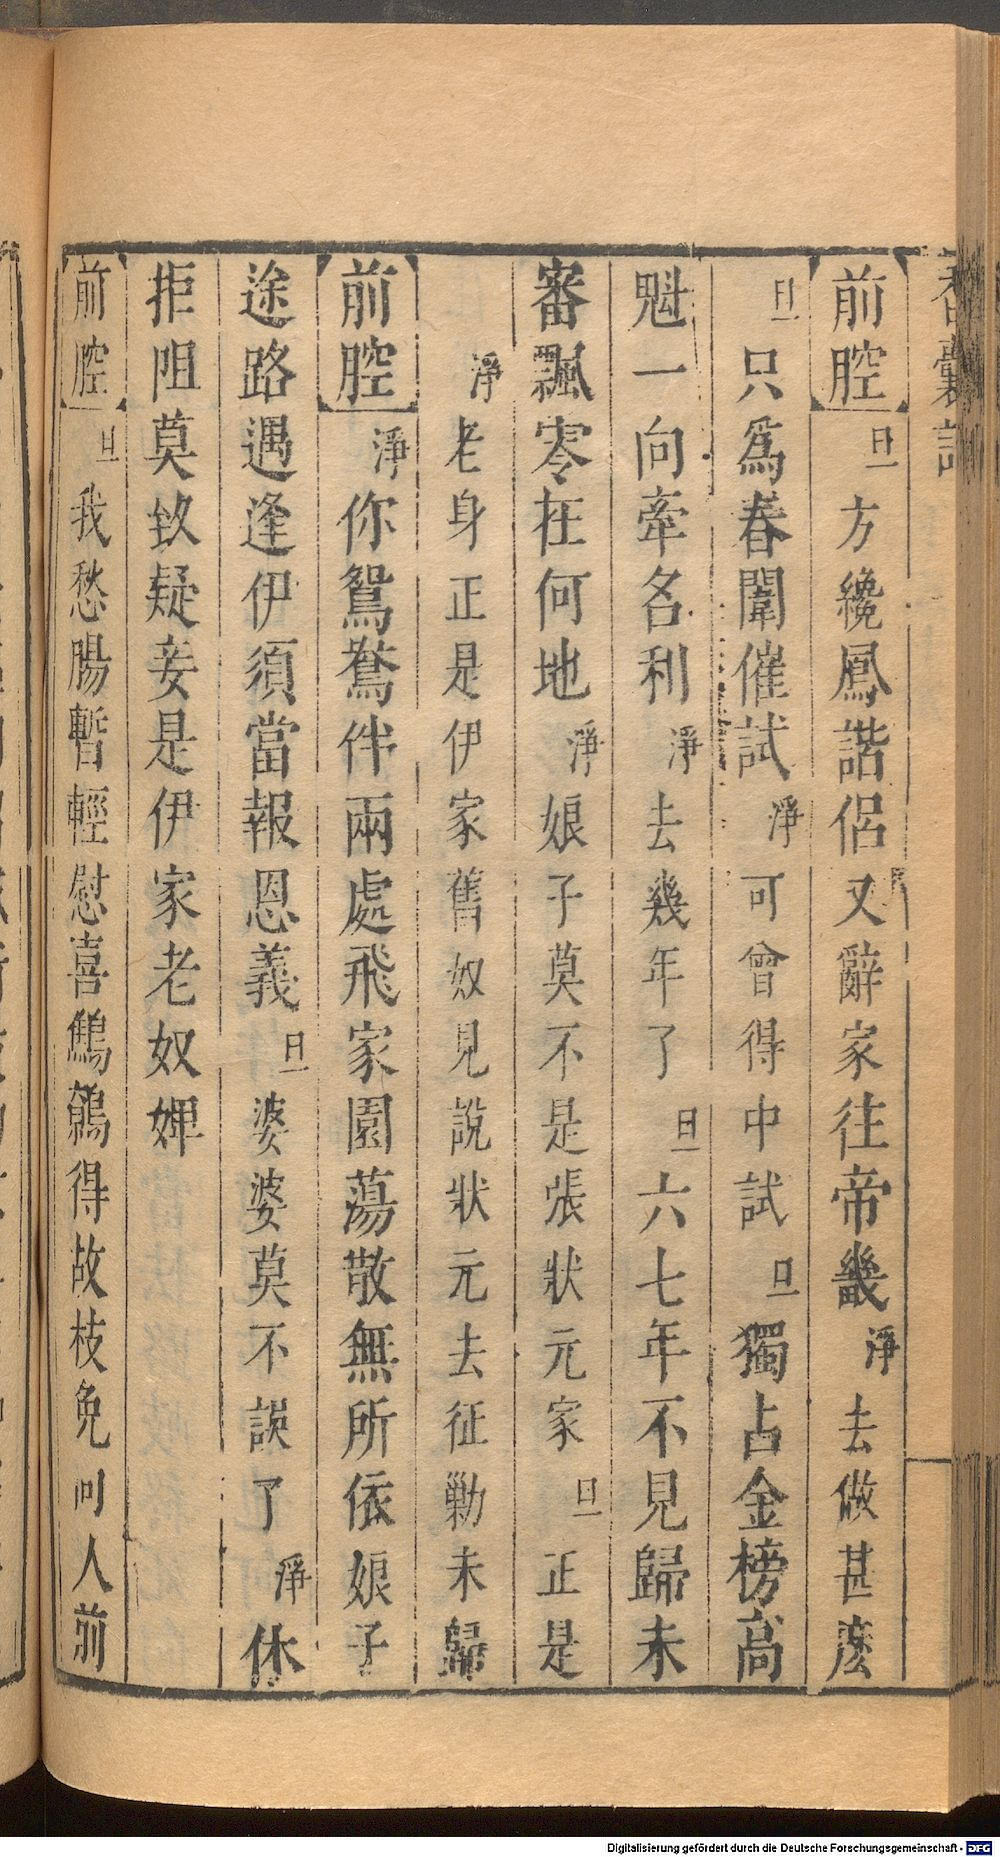 香囊記
前腔 旦 方纔鳳諧侶又辭家往帝畿 淨 去做甚麽
旦 只爲春闈催試 淨 可曾得中試 旦 獨占金榜高
魁一向牽名利 淨 去幾年了 旦 六七年不見歸未
審飄零在何地 淨 娘子莫不是張狀元家 旦 正是
淨 老身正是伊家舊奴見說狀元去征勦未歸
前腔 淨 你鴛鴦伴兩處飛家園蕩散無所依娘子
途路遇逢伊須當報恩義 旦 婆婆莫不誤了 淨 休
拒阻莫致疑妾是伊家老奴婢
前腔 旦 我愁腸暫輕慰喜鷦鷯得故枝免叫人前
Digitalisierung gefördert durch die Deutsche Forschungsgemeinschaft - DFG